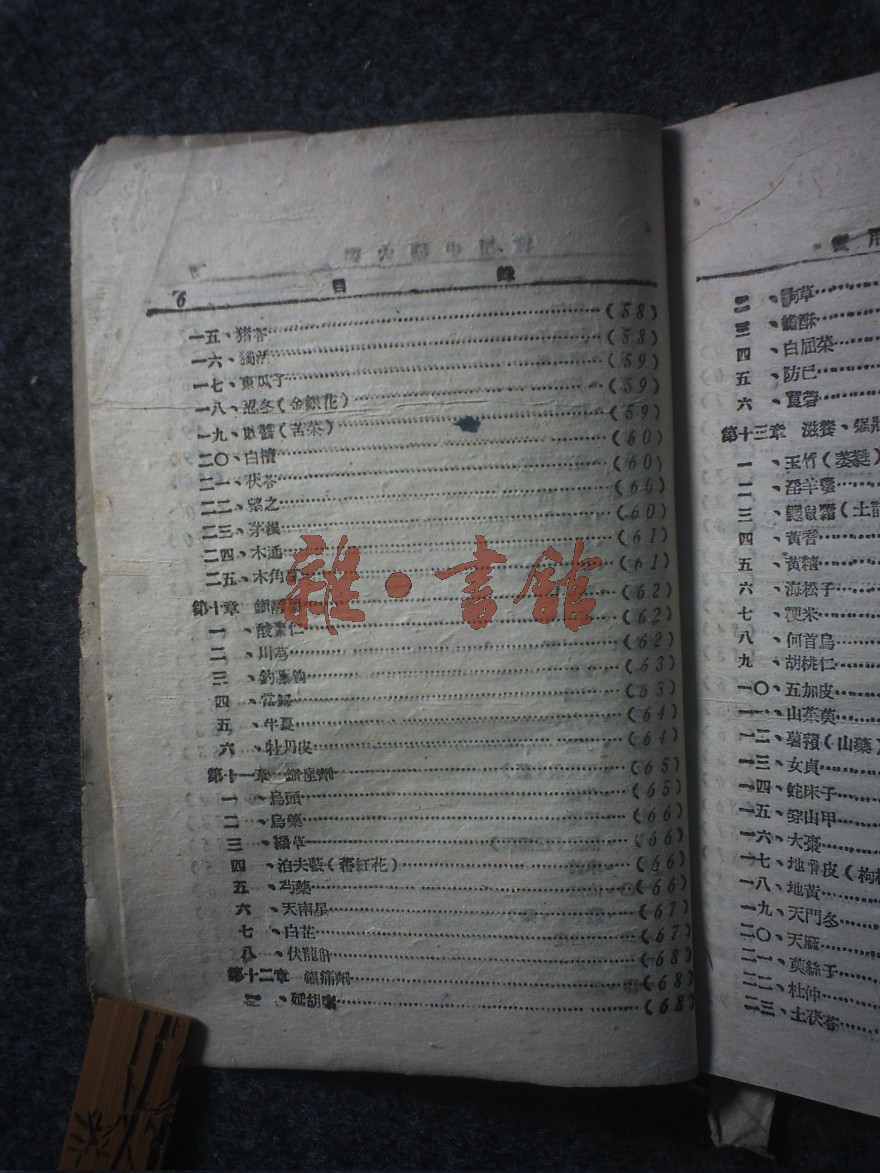 6 目錄
一五、猪苓(58)
一六、獨活(58)
一七、東瓜子(59)
一八、忍冬(金銀花)(59)
一九、敗醬(苦菜)(59)
二〇、白檀(60)
二一、茯苓(60)
二二、(60)
二三、茅根(60)
二四、木通(61)
二五、木角(61)
第十章 鎮(62)
一、酸素仁(62)
二、川芎(62)
三、釣藤鈎(63)
四、當歸(63)
五、半夏(64)
六、牡丹皮(64)
第十一章 鎮痙劑(65)
一、烏頭(65)
二、烏藥(66)
三、草(66)
四、泊夫藍(番紅花)(66)
五、芍藥(66)
六、天南星(67)
七、白芷(67)
八、伏龍肝(68)
第十二章 鎮痛劑(68)
延胡索(68)
雜·書館
實用
二、鈎草
三、蟾酥
四、白屈菜
五、防已
六、
第十三章 滋養、强壯
一、玉竹(萎蕤)
二、淫羊藿
三、鼴鼠霜(土龍
四、黃耆
五、黃精
六、海松子
七、粳米
八、何首烏
九、胡桃仁
一〇、五加皮
一一、山茱萸
一二、薯蕷(山藥)
一三、女貞
一四、蛇床子
一五、穿山甲
一六、大棗
一七、地骨皮(枸杞
一八、地黃
一九、天門冬
二〇、天麻
二一、莵絲子
二二、杜仲
二三、土茯苓